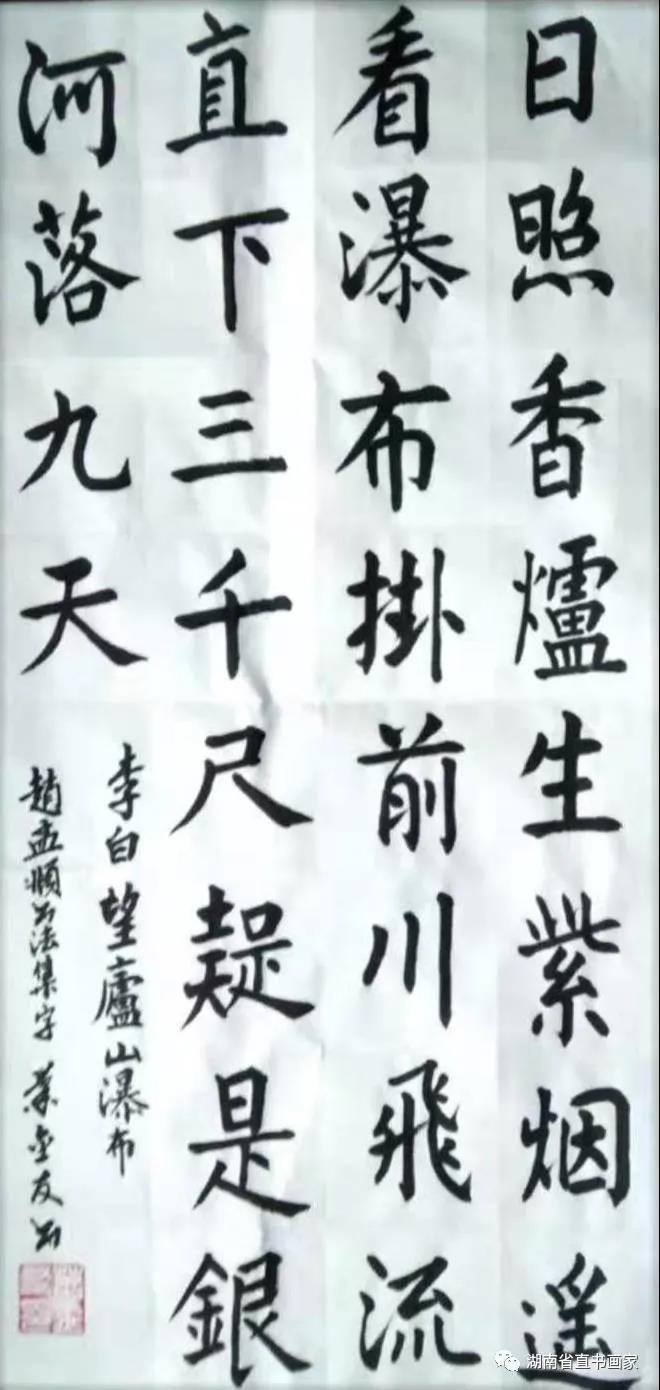 日照香爐生紫烟遥
看瀑布掛前川飛流
直下三千尺疑是銀
河落九天
李白望廬山瀑布
趙孟頫书法集字 葉金友书
湖南省直书画家